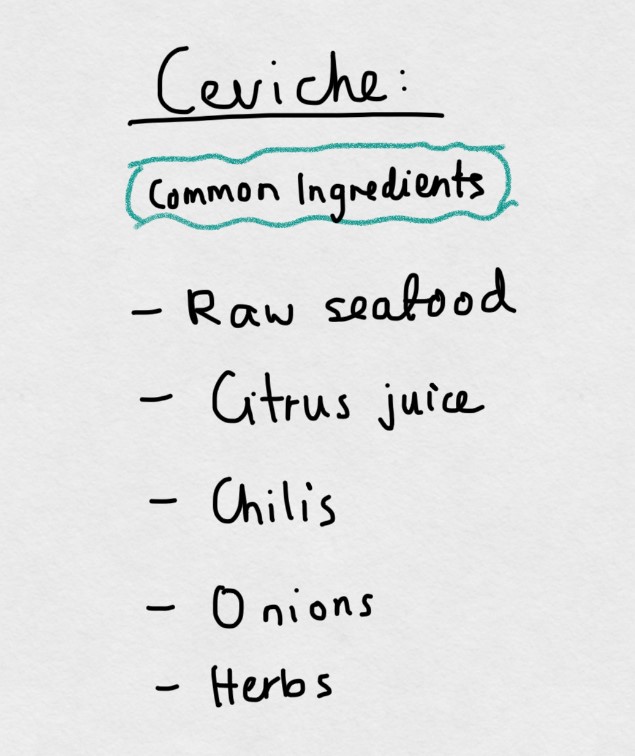 Ceviche:
Common Ingredients
- Raw seafood
- Citrus juice
- Chilis
- Onions
- Herbs